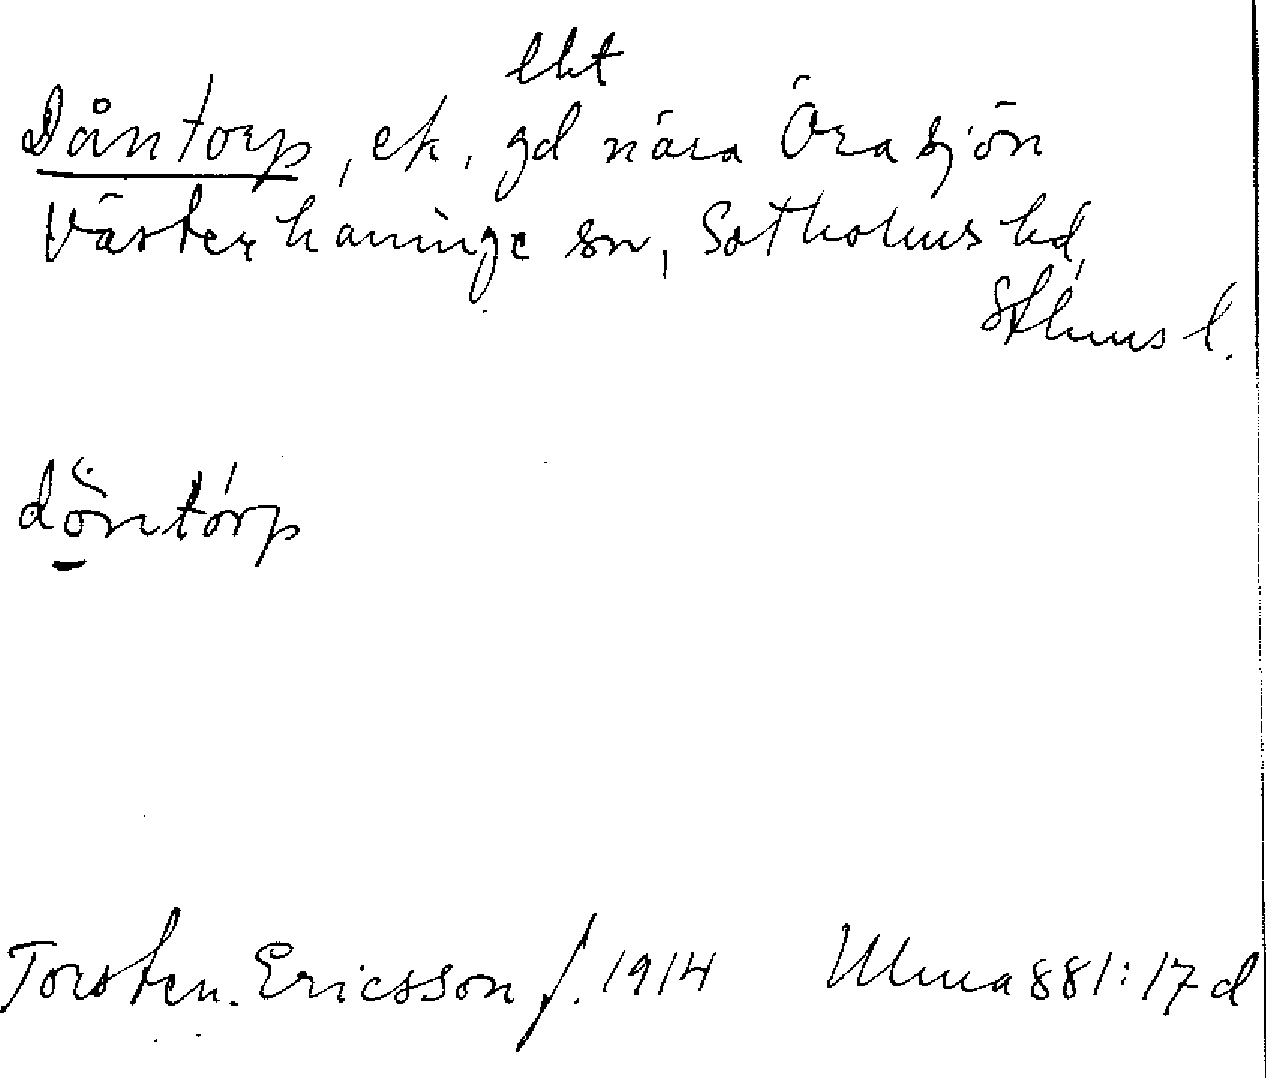 ebt
Dåntorp, ek. gd nära Örasjön
Västerhaninge sn, Sotholms hd,
Sthlms l.
döntórp
Torsten. Ericsson f. 1914 Ulma 881:17 d